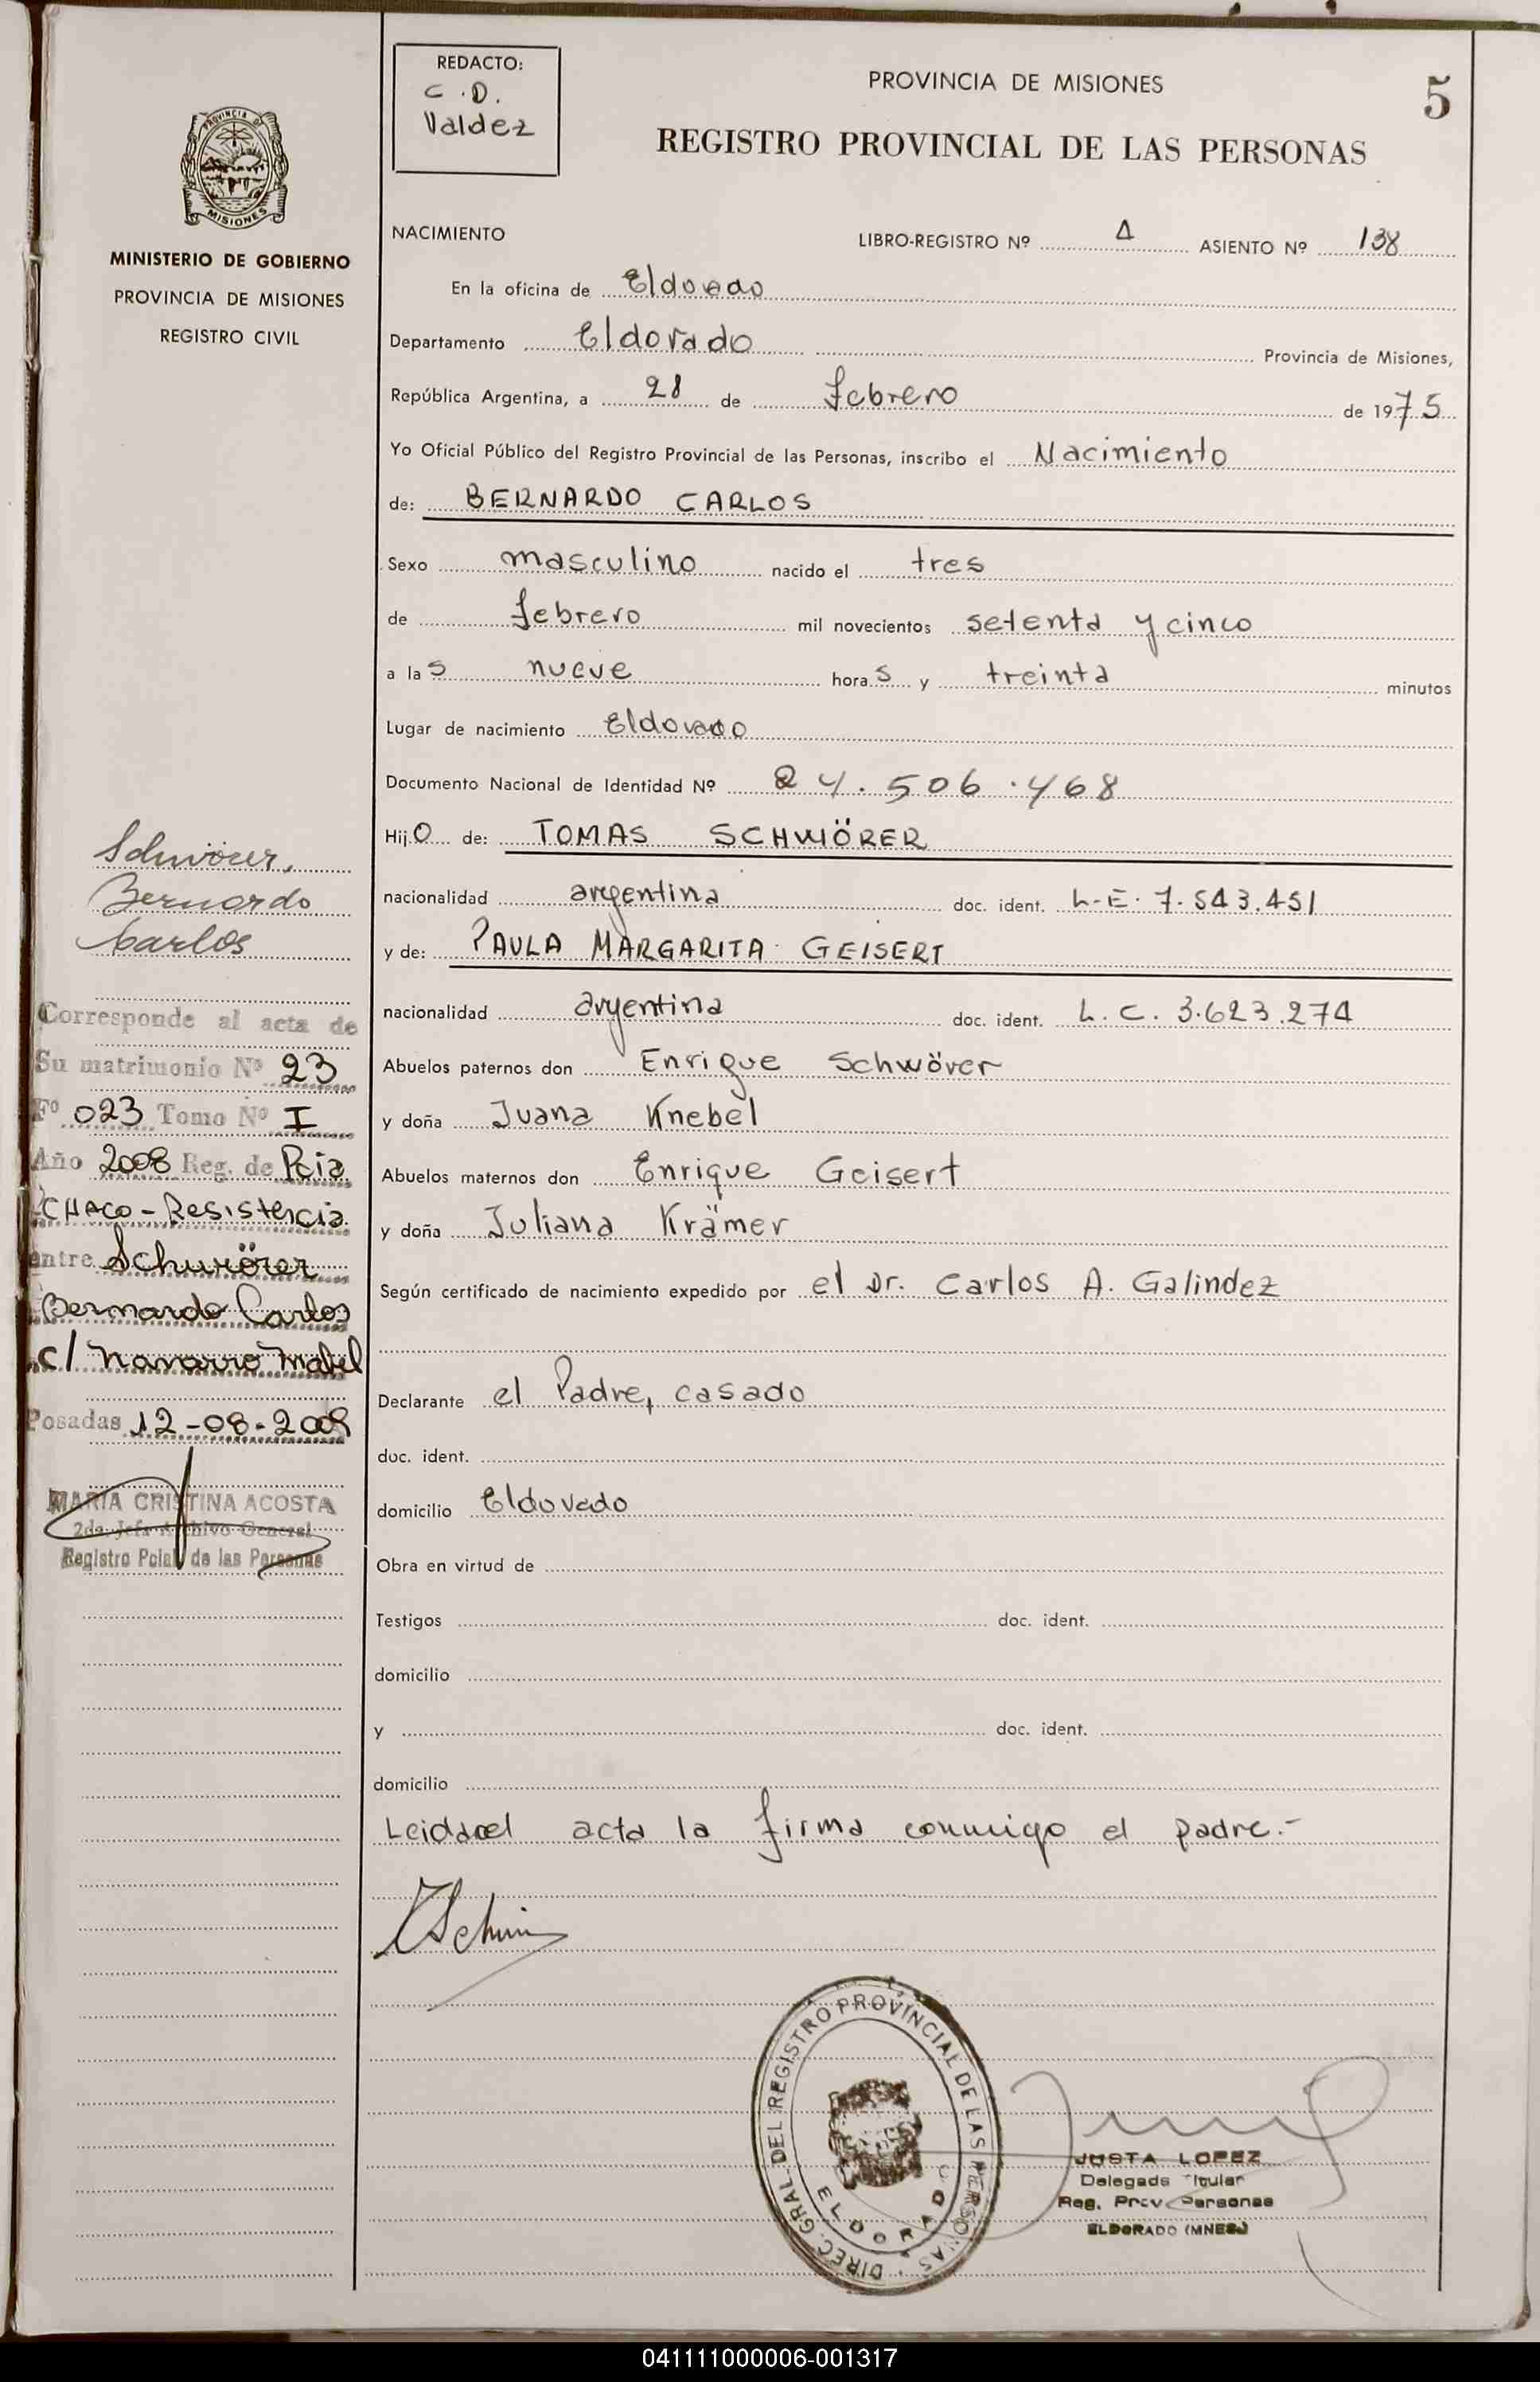 REDACTO:
C.D.
Valdez
PROVINCIA DE MISIONES
5
REGISTRO PROVINCIAL DE LAS PERSONAS
PROVINCIA DE
MISIONES
MINISTERIO DE GOBIERNO
PROVINCIA DE MISIONES
REGISTRO CIVIL
NACIMIENTO
LIBRO-REGISTRO Nº ASIENTO Nº 138
En la oficina de Eldorado
Departamento Eldorado Provincia de Misiones,
República Argentina, a 28 de febrero de 1975
Yo Oficial Público del Registro Provincial de las Personas, inscribo el Nacimiento
de: BERNARDO CARLOS
Sexo masculino nacido el tres
de febrero mil novecientos setenta y cinco
a las nueve horas y treinta minutos
Lugar de nacimiento Eldorado
Documento Nacional de Identidad Nº 24.506.468
Hijo de: TOMAS SCHWÖRER
nacionalidad argentina doc. ident. L.E. 7.543.451
y de: PAULA MARGARITA GEISERT
nacionalidad argentina doc. ident. L.C. 3.623.274
Abuelos paternos don Enrique Schwörer
y doña Juana Knebel
Abuelos maternos don Enrique Geisert
y doña Juliana Krämer
Según certificado de nacimiento expedido por el Dr. Carlos A. Galindez
Declarante el Padre, casado
doc. ident.
domicilio Eldorado
Obra en virtud de
Testigos doc. ident.
domicilio
y doc. ident.
domicilio
Leida el acta la firma conmigo el padre.-
Schwörer,
Bernardo
Carlos
Corresponde al acta de
Su matrimonio Nº 23
Fº 023 Tomo Nº I
Año 2008 Reg. de Pcia
CHACO-Resistencia
entre Schwörer
Bernardo Carlos
c/ Navarro Mabel
Posadas 12-08-2008
MARIA CRISTINA ACOSTA
2da. Jefa Archivo General
Registro Pcial de las Personas
DIREC. GRAL. DEL REGISTRO PROVINCIAL DE LAS PERSONAS
ELDORADO
JUSTA LOPEZ
Delegada Titular
Reg. Prov. Personas
ELDORADO (MNES.)
041111000006-001317